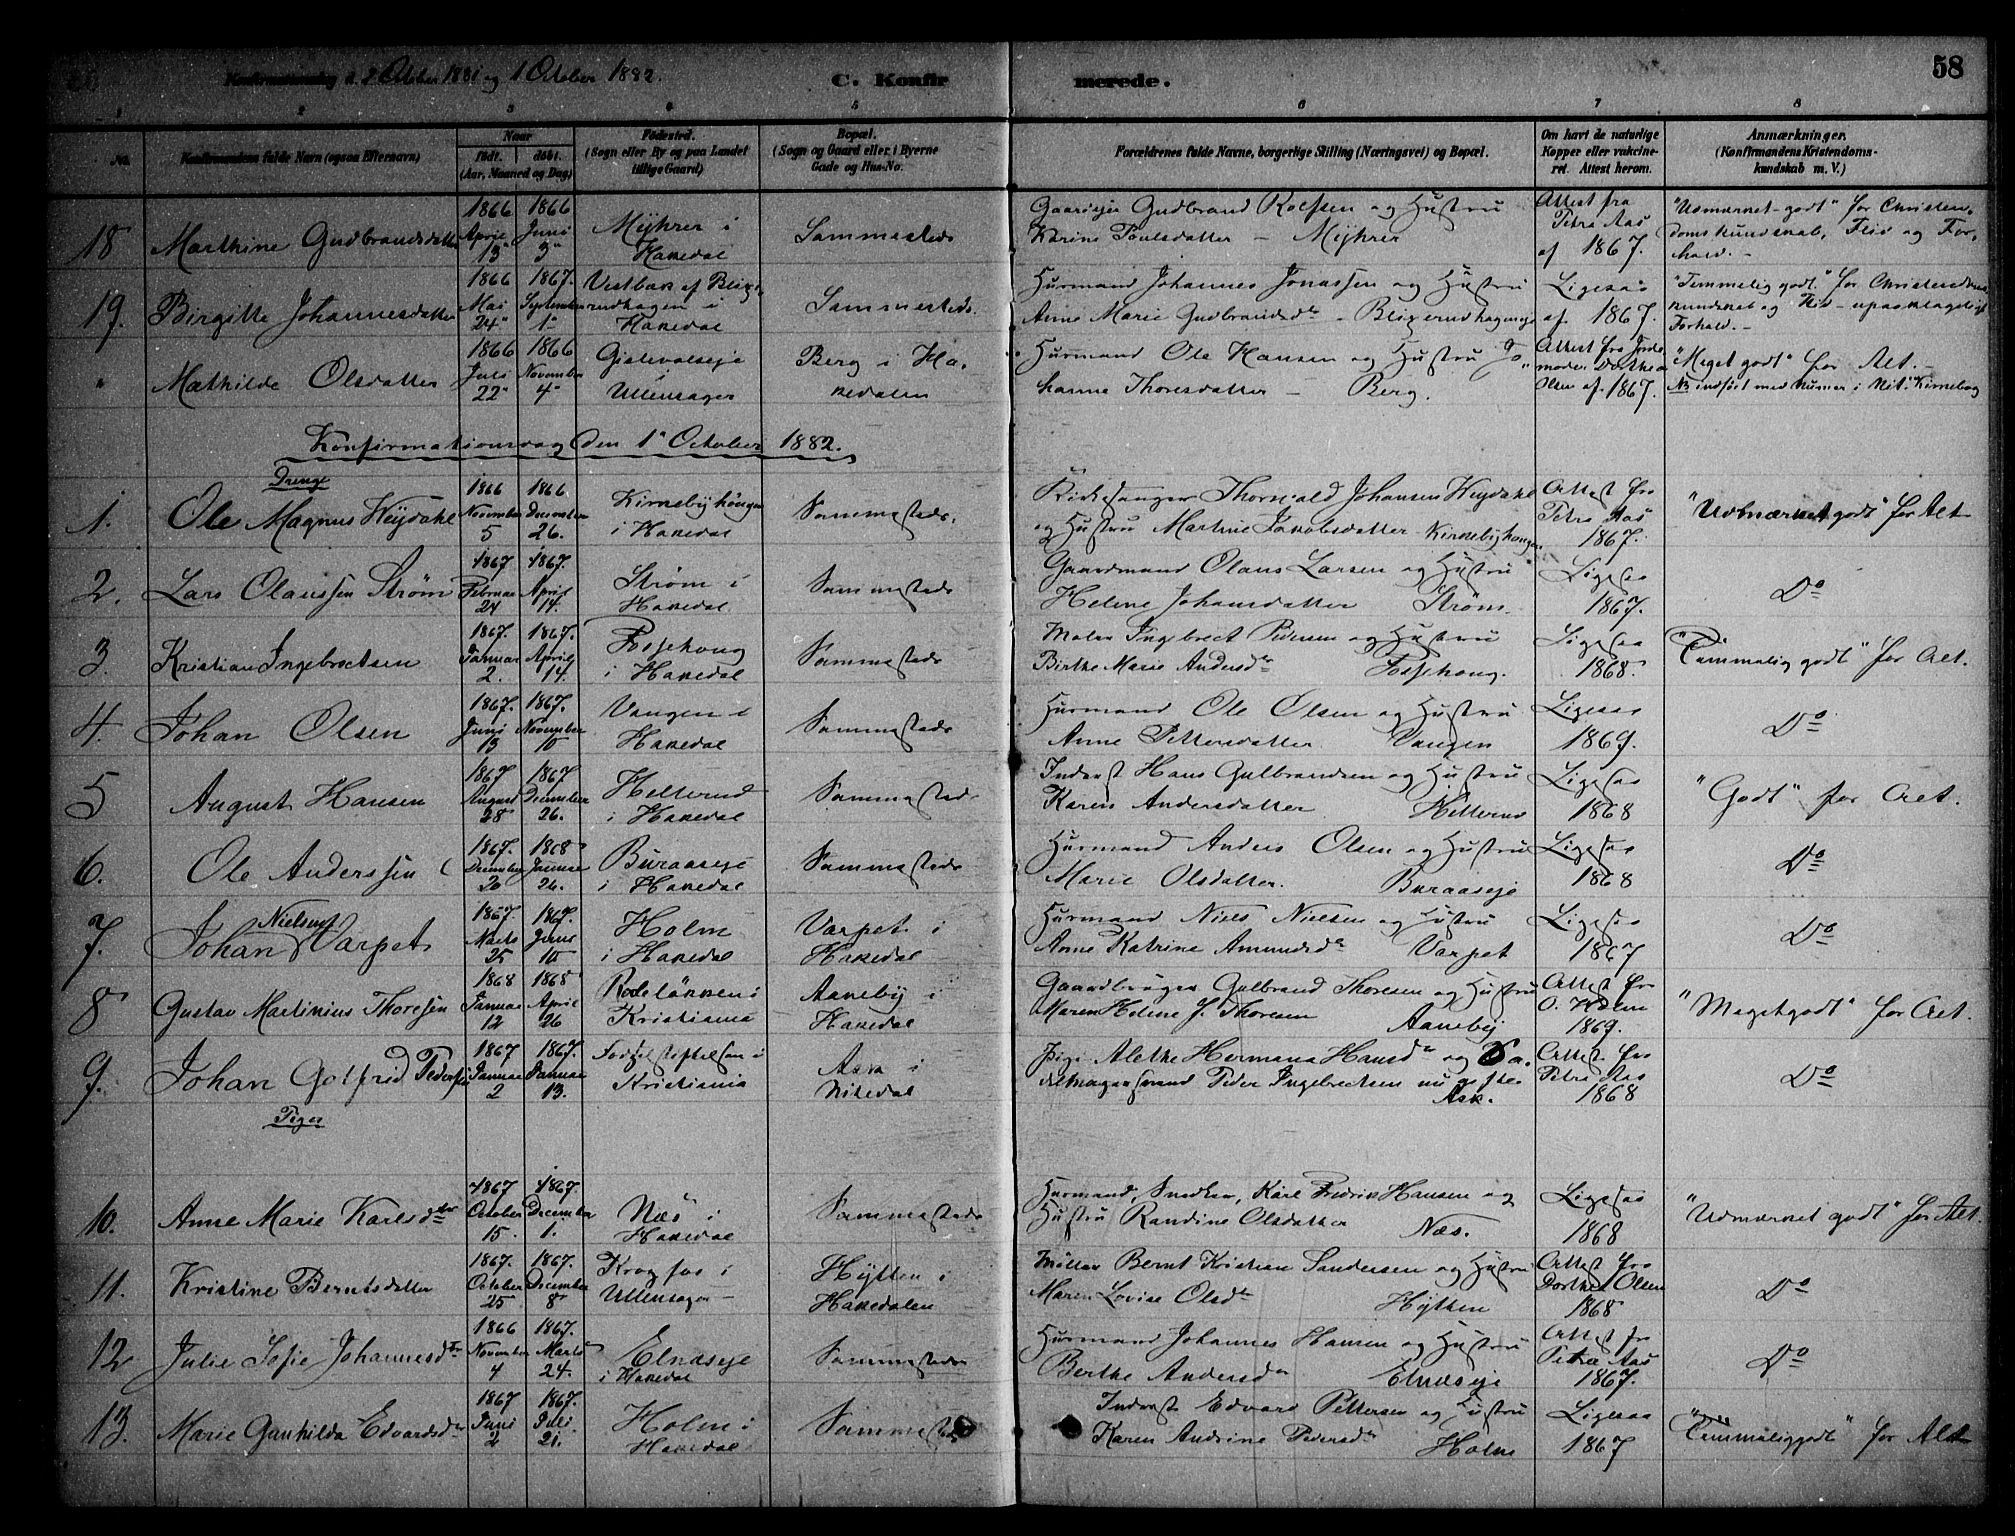 Konfirmationsdag d. 2 October 1881 og 1 October 1882.
C. Konfirmerede.
58
1 2 3 4 5 6 7 8
No.
Konfirmandens fulde Navn (ogsaa Efternavn)
Naar
født. døbt.
(Aar, Maaned og Dag)
Fødested.
(Sogn eller By og paa Landet
tillige Gaard)
Bopæl.
(Sogn og Gaard eller i Byerne
Gade og Hus-No.
Forældrenes fulde Navne, borgerlige Stilling (Næringsvei) og Bopæl.
Om havt de naturlige
Kopper eller vakcine-
ret. Attest herom.
Anmærkninger.
(Konfirmandens Kristendoms-
kundskab m. V.)
18 Marthine Gudbrandsdatter
1866 April 13
1866 Juni 3"
Myhrer i
Hakedal
Sammesteds
Gaardejer Gudbrand Rolfsen og Hustru
Karine Poulsdatter – Myhrer
Attest fra
Petra Aas
af 1867.
"Udmærket godt" for Christen-
domskundskab, Flid og For-
hold. –
19. Birgitte Johannesdatter
1866 Mai 24"
1867. September 1"
Hakedal
Sammesteds.
Husmand Johannes Jonassen og Hustru
Anne Marie Gudbrandsdr
Ligesaa
af 1867.
"Temmelig godt" for Christendoms-
kundskab og Flid – upaaklageligt
Forhold. –
" Mathilde Olsdatter
1866 Juli 22"
1866 November 4"
Ullensager
Berg i Ha-
kedalen
Husmand Ole Hansen og Hustru Jo-
hanne Thoresdatter – Berg.
Attest fra Jorde-
moder Dorthea
Olsen af 1867.
"Meget godt" for Alt. –
Konfirmationsdag den 1" October 1882.
Drenge
1. Ole Magnus Heydahl
1866 November 5
1866 December 26.
Kirkebyhaugen
i Hakedal
Sammesteds.
Kirkesanger Thorvald Johansen Heydahl
og Hustru Martine Jakobsdatter Kirkebyhaugen
Attest fra
Petra Aas
1867.
"Udmærket godt" for Alt
2. Lars Olaussen Strøm
1867 Februar 24
1867. April 14.
Strøm i
Hakedal
Sammesteds
Gaardmand Olaus Larsen og Hustru
Helene Johansdatter Strøm.
Ligesaa
1867.
Do
3. Kristian Ingebrectsen
1867. Januar 2.
1867. April 14.
i Hakedal
Sammesteds
Ingebrect Pedersen og Hustru
Birthe Marie Andersdr
Ligesaa
1868.
"Temmelig godt" for Alt.
4. Johan Olsen
1867. Juni 13
1867. November 10
Vangen i
Hakedal
Sammesteds
Husmand Ole Olsen og Hustru
Anne Pettersdatter Vangen
Ligesaa
1869.
Do
5 August Hansen
1867 August 28
1867. December 26.
Hellerud
i Hakedal
Sammesteds
Inderst Hans Gulbrandsen og Hustru
Karen Andersdatter Hellerud
Ligesaa
1868
"Godt" for Alt.
6. Ole Anderssen
1867. December 20
1868 Januar 26.
Buraaseje
i Hakedal
Sammesteds
Husmand Anders Olsen og Hustru
Marie Olsdatter. Buraaseje
Ligesaa
1868
Do
7. Johan Nielsen Varpet
1867. Marts 25
1867. Juni 10
Holm
i Hakedal
Varpet i
Hakedal
Husmand Niels Nielsen og Hustru
Anne Katrine Amundsdr Varpet
Ligesaa
1867
Do
8 Gustav Martinius Thoresen
1868 Januar 12
1868 April 26
Rodeløkken i
Kristiania
Aaneby i
Hakedal
Gaardbruger Gulbrand Thoresen og Hustru
Maren Helene J. Thoresen Aaneby
Attest fra
O. Holm
1869.
"Meget godt" for Alt.
9. Johan Gotfrid Pedersen
1867 Januar 2
1867. Januar 13.
Fødselsstiftelsen i
Kristiania
Ask i
Nitedal
Pige Alethe Hermana Hansdr og Sa-
delmagersvend Peder Ingebrectsen nu gifte
Ask.
Attest fra
Petra Aas
1868
Do
Piger
10. Anne Marie Karlsdtter
1867 October 15.
1867. December 1.
Næs i
Hakedal
Sammesteds
Husmand, Snedker, Karl Fredrik Hansen og
Hustru Randine Olsdatter Næs.
Ligesaa
1868
"Udmærket godt" for Alt.
11. Kristine Berntsdatter
1867. October 25
1867. December 8
Krogfos i
Ullensager –
Hytten i
Hakedalen
Møller Bernt Kristian Sandersen og Hustru
Maren Lovise Olsdr Hytten
Attest fra
Dorthea Olsen
1868
Do
12 Julie Sofie Johannesdtr
1866 November 4
1867. Marts 24.
Elnæseje
i Hakedal
Sammesteds
Husmand Johannes Hansen og Hustru
Berthe Andersdr Elnæseje
Attest fr
Petra Aas
1867.
Do
13. Marie Gunhilda Edvardsdr
1867 Juni 2
1867. Juli 21.
Holm i
Hakedal
Sammesteds
Inderst Edvard Pettersen og Hustru
Karen Andrine Pedersdr Holm
Ligesaa
1867
"Temmelig godt" for Alt